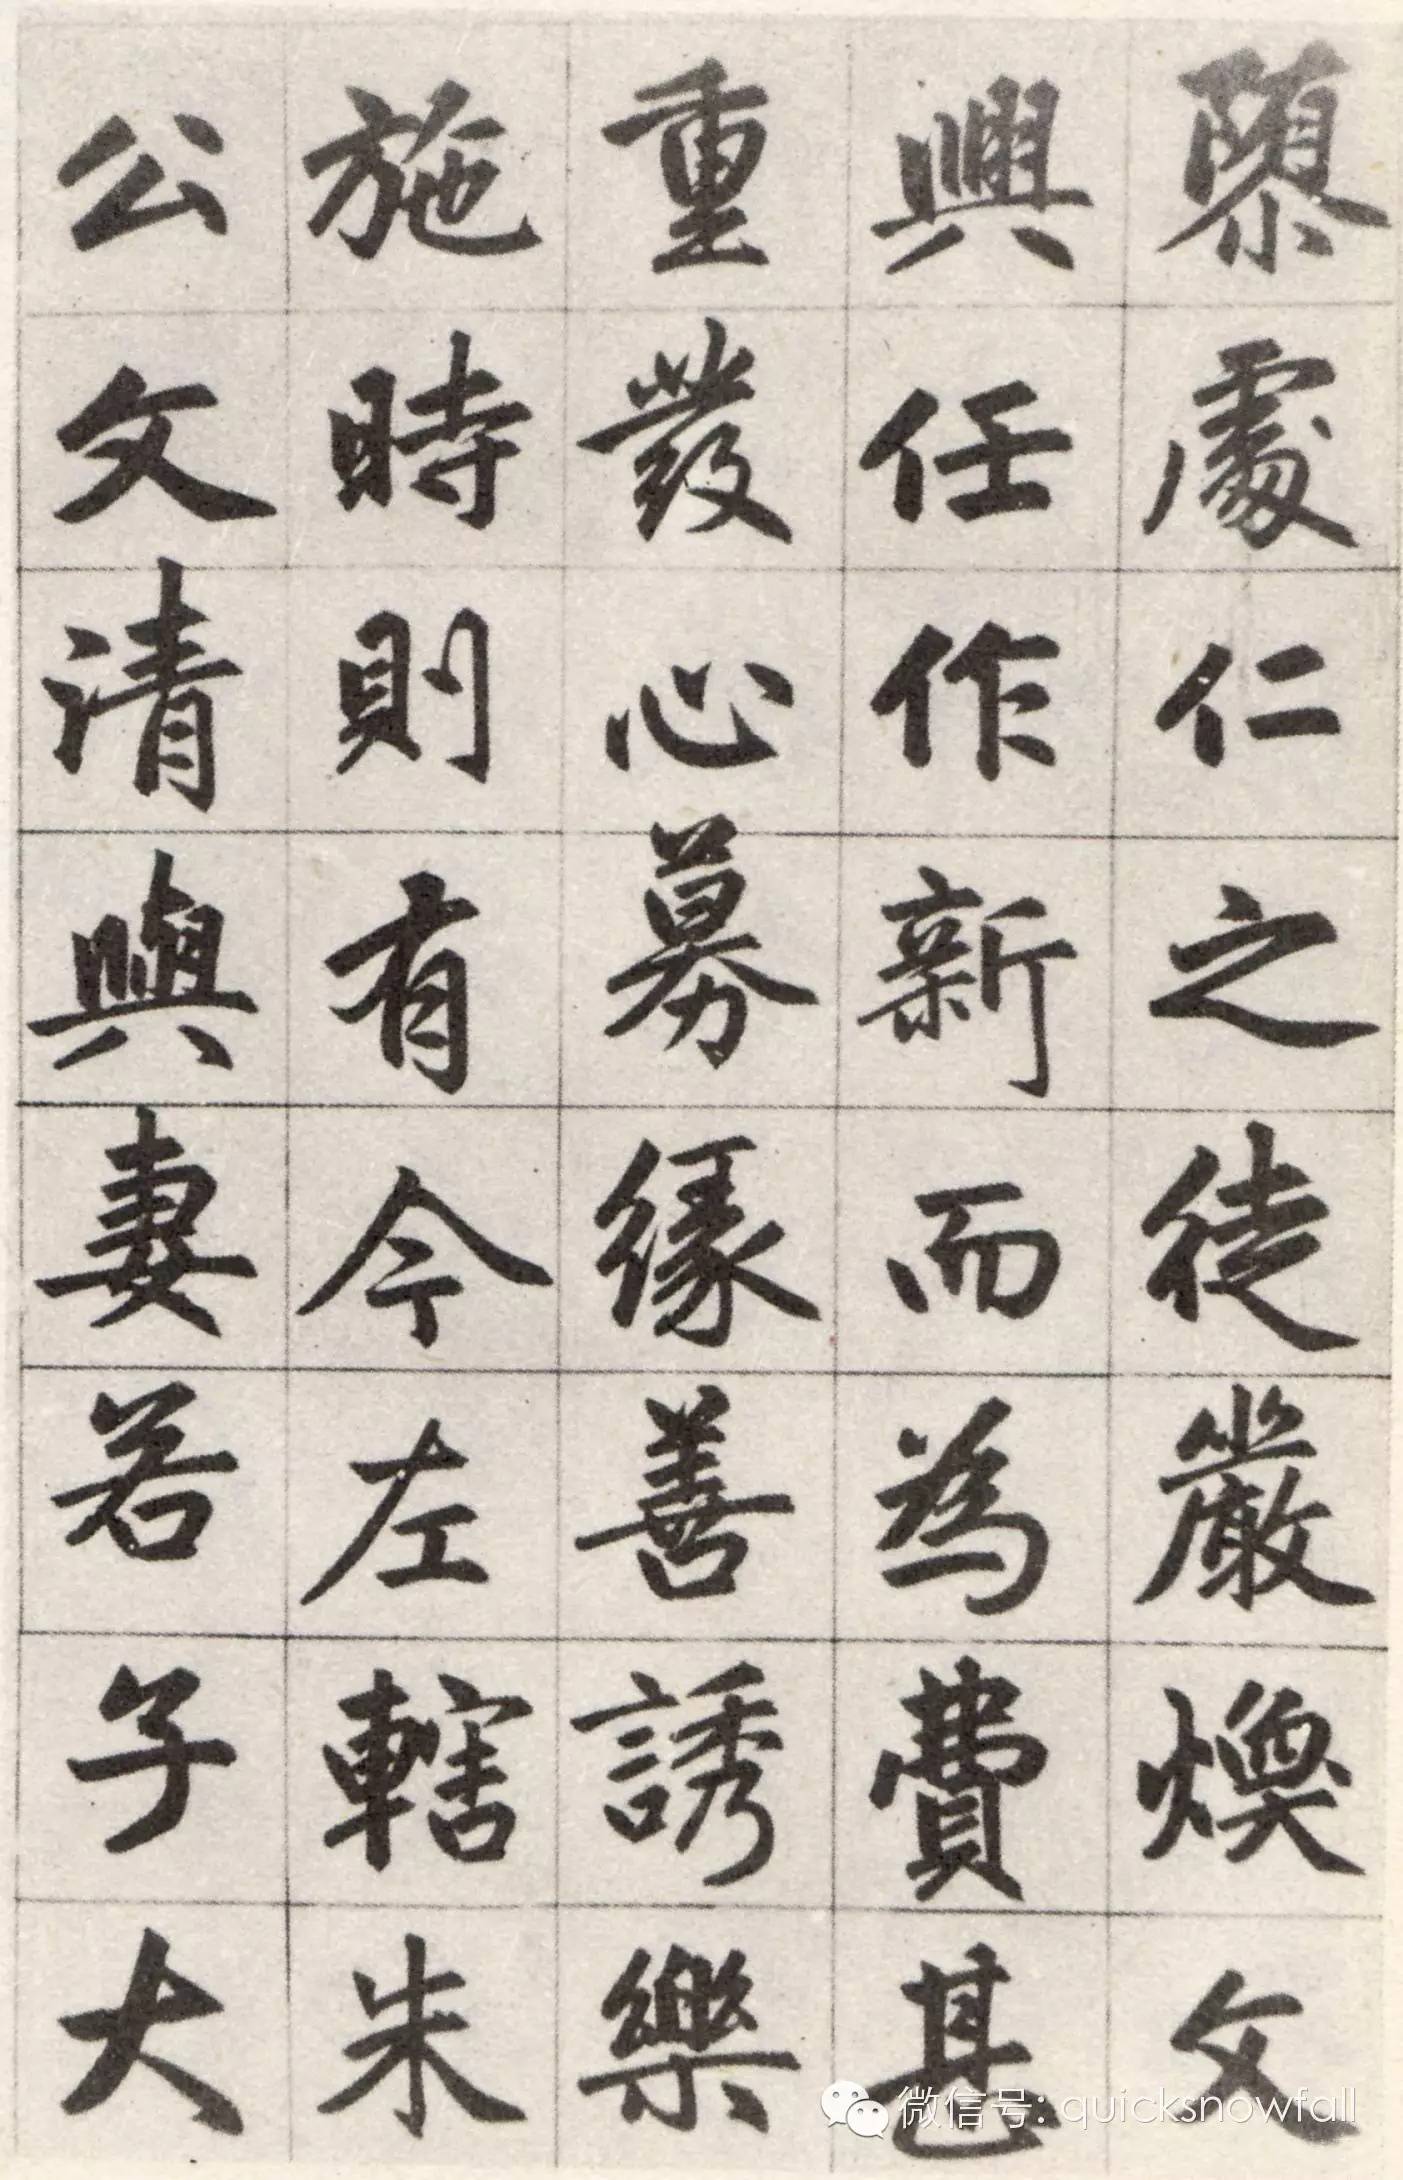 隳處仁之徒嚴煥文
興任作新而為費甚
重發心募緣善誘樂
施時則有今左轄朱
公文清與妻若子大
微信号: quicksnowfall